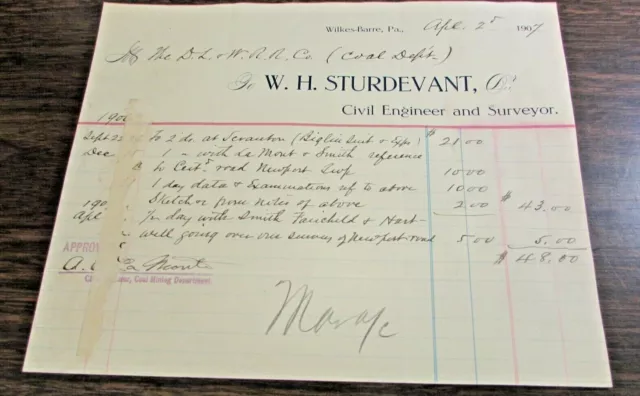 Wilkes-Barre, Pa., Apl. 25 1907
The D. L. & W. R. R. Co. (Coal Dept.)
To W. H. STURDEVANT, Dr.
Civil Engineer and Surveyor.
190
Sept 22 To 2 ds. at Scranton (Biglin Suit & Exps) $ 21.00
Dec 1 - with La Mont & Smith reference
to Cert. road Newport Twp 10.00
1 day data & Examinations up to above 10.00
190 Sketch from notes of above 2.00 $ 43.00
Apl. 1/2 day with Smith Fairchild & Hart-
well going over our survey of Newport road 5.00 5.00
$ 48.00
APPROV
A. La Mont
Coal Mining Department